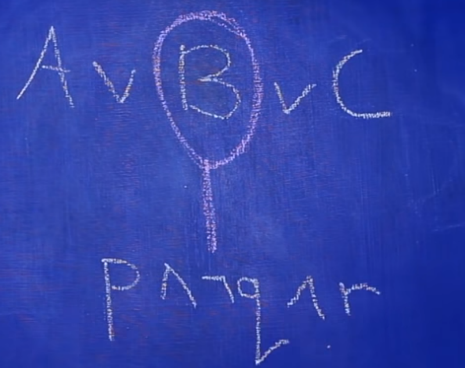 A ∨ B ∨ C
p ∧ ¬q ∧ r